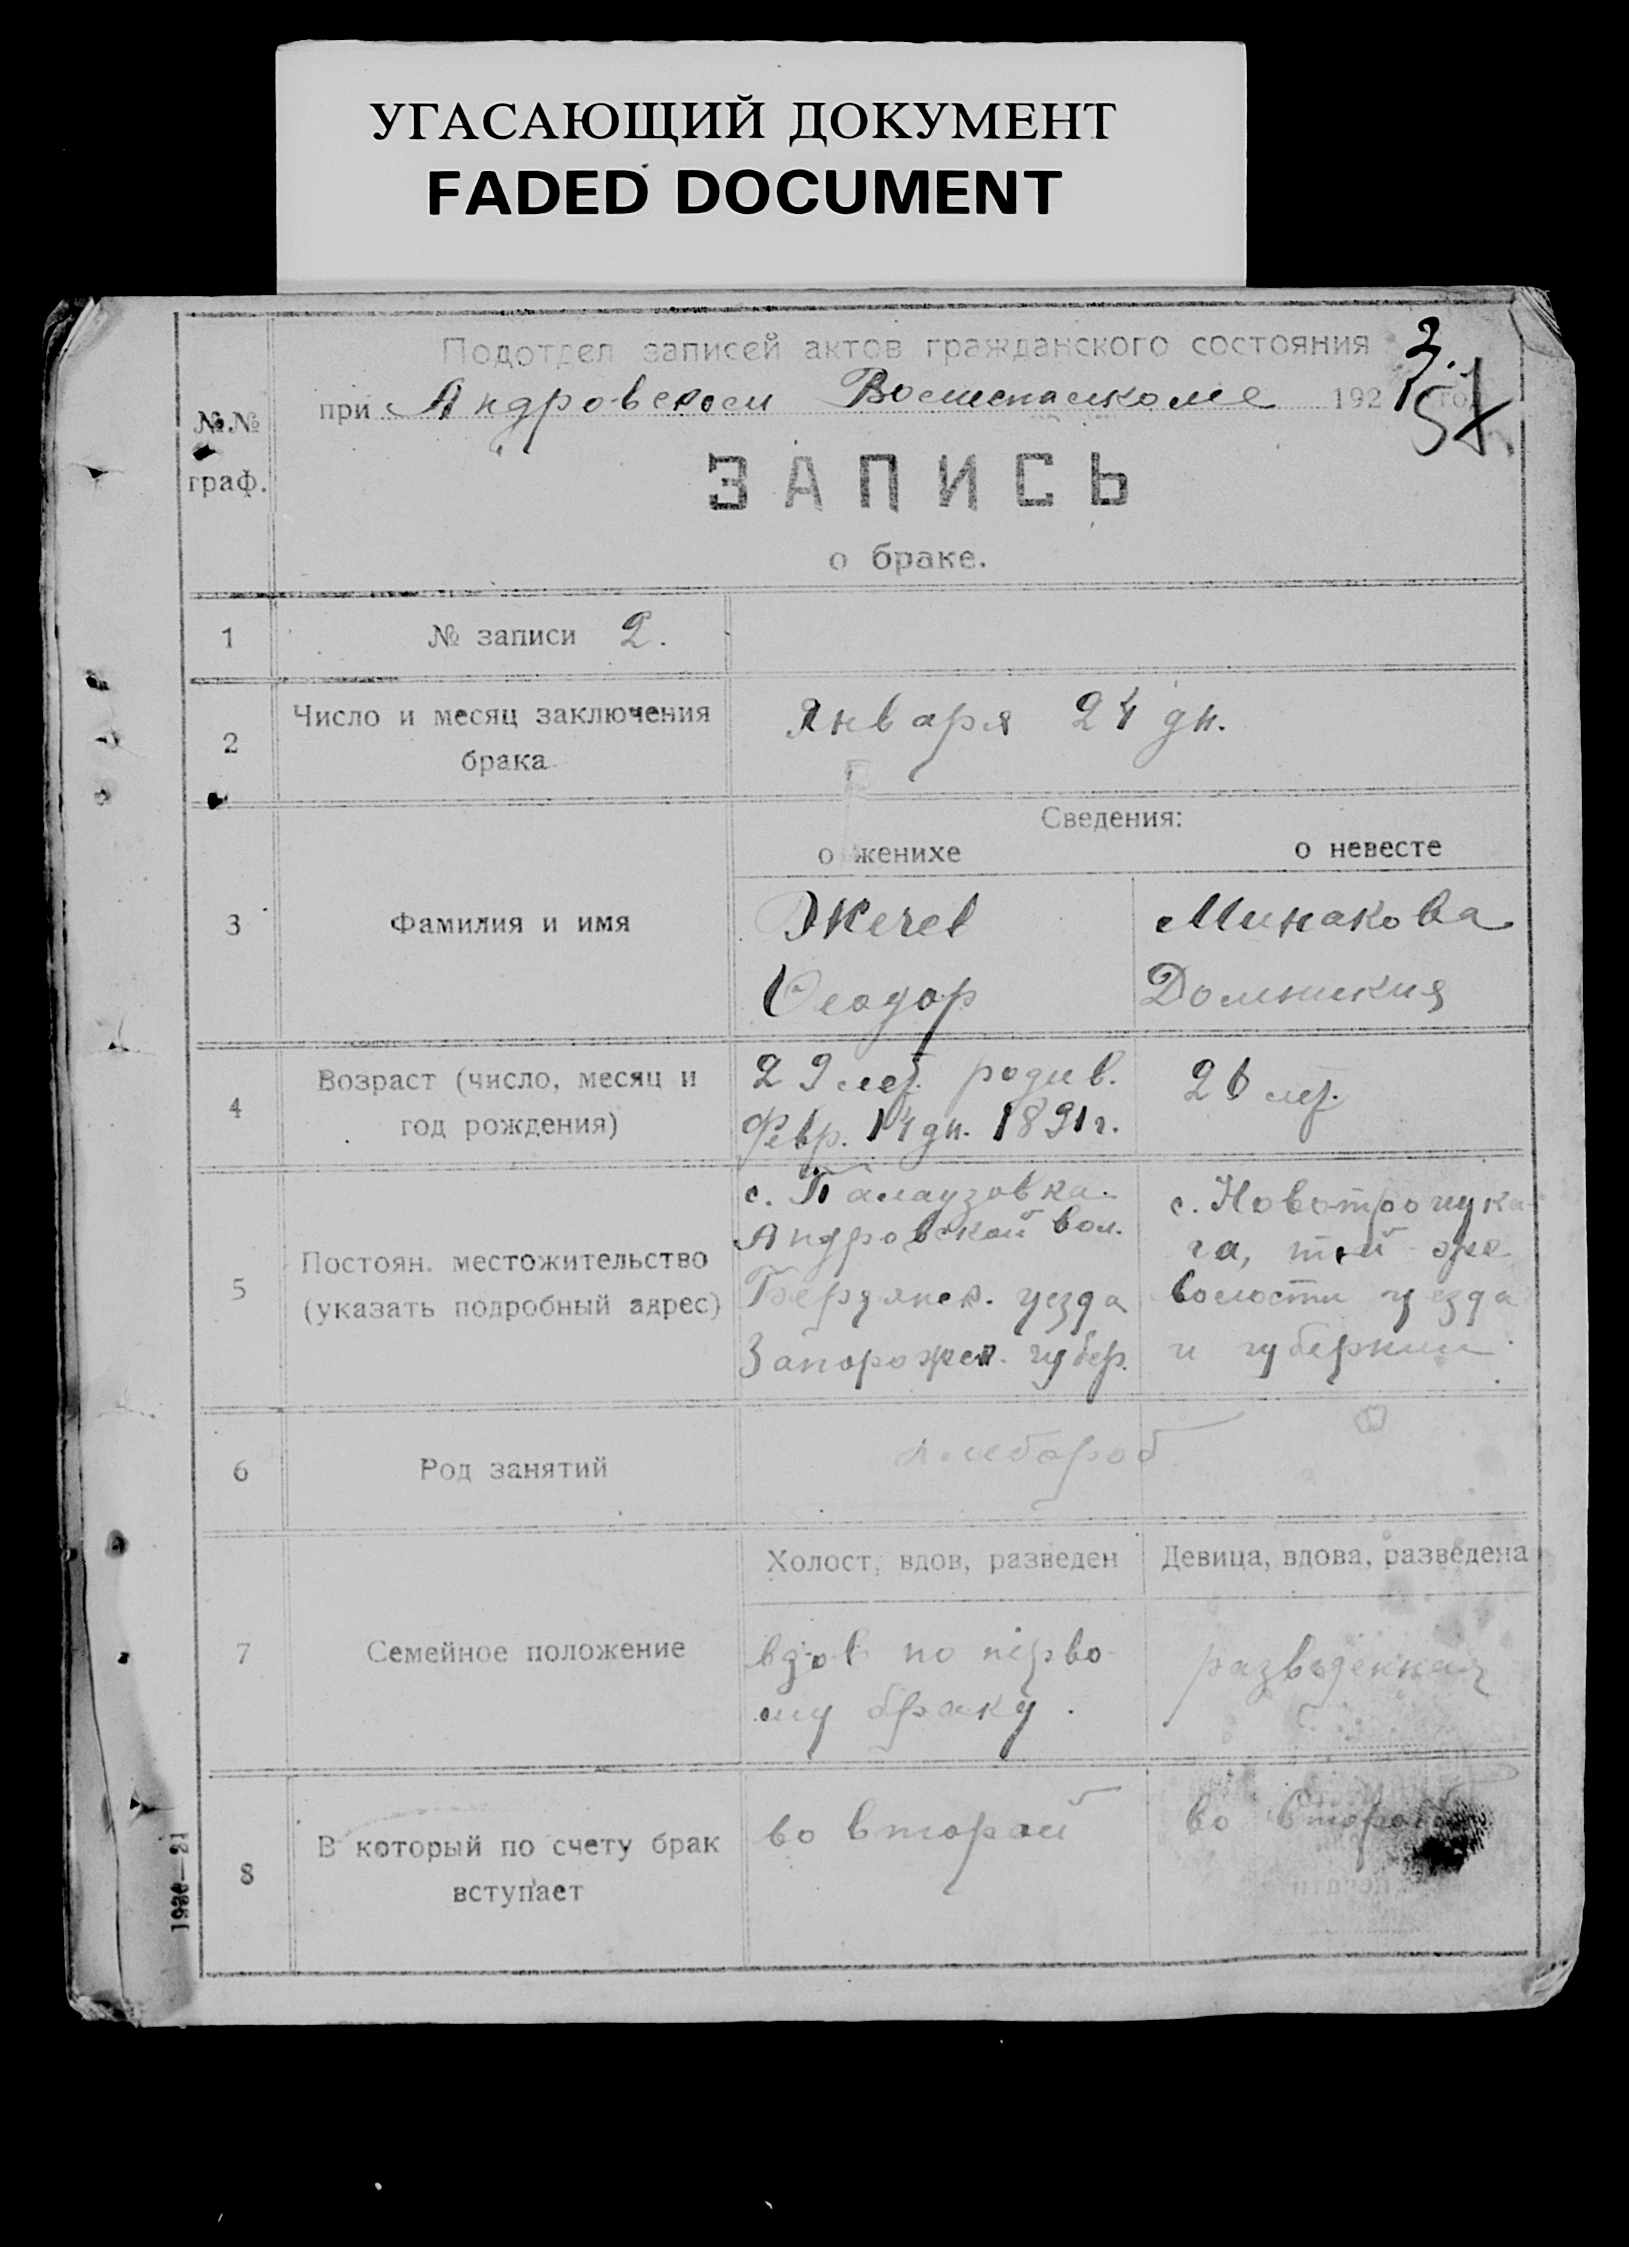 УГАСАЮЩИЙ ДОКУМЕНТ
FADED DOCUMENT
Подотдел записей актов гражданского состояния
3.
при Андровском Волисполкоме 1921 год
57
№№
граф.
ЗАПИСЬ
о браке.
1 № записи 2.
2 Число и месяц заключения
брака
Января 24 дн.
Сведения:
о женихе о невесте
3 Фамилия и имя
Жечев Минакова
Феодор Домникия
4 Возраст (число, месяц и
год рождения)
29 лет. родив. 26 лет.
Февр. 14 дн. 1891 г.
5 Постоян. местожительство
(указать подробный адрес)
с. Палаузовка.
Андровской вол.
Бердянск. уезда
Запорожск. губер.
с. Новотроицка-
го, той же
волости уезда
и губернии.
6 Род занятий
хлебороб
7 Семейное положение
Холост, вдов, разведен Девица, вдова, разведена
вдов по перво-
му браку.
разведенная
8 В который по счету брак
вступает
во второй во второй
1920—21